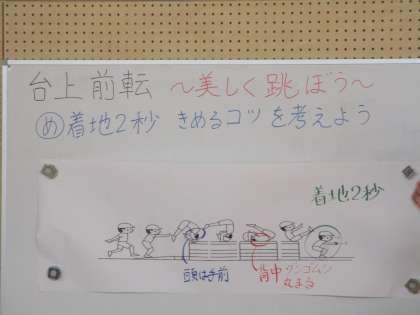 台上前転 ～美しく跳ぼう～
め 着地2秒 きめるコツを考えよう
着地2秒
頭は手前
背中 ダンゴムシ
丸まる